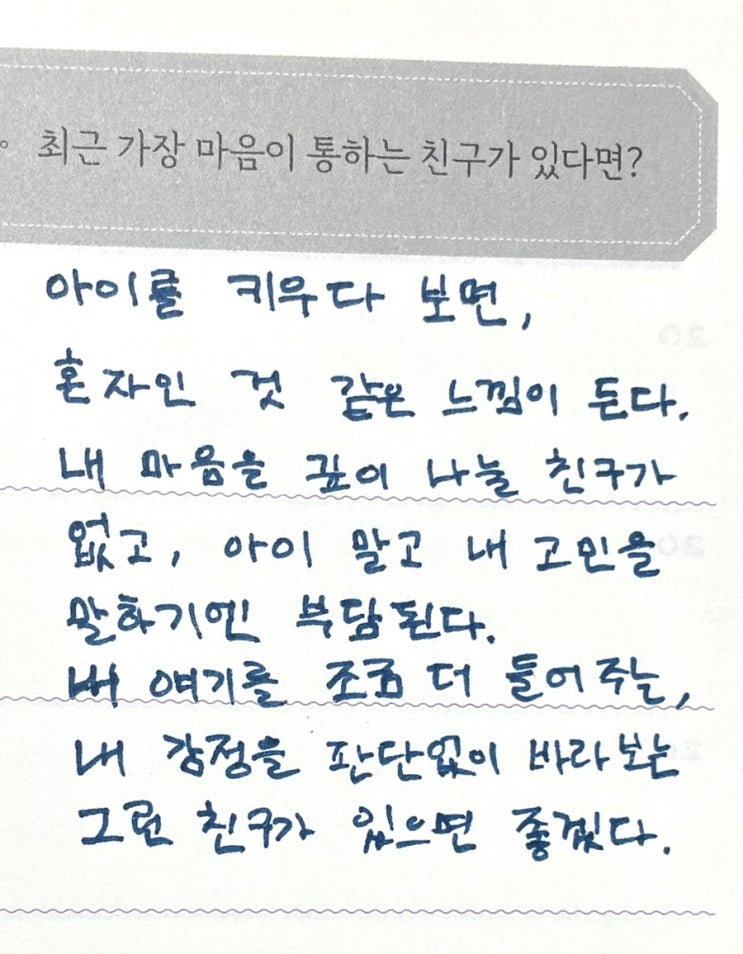 최근 가장 마음이 통하는 친구가 있다면?
아이를 키우다 보면,
혼자인 것 같은 느낌이 든다.
내 마음을 깊이 나눌 친구가
없고, 아이 말고 내 고민을
말하기엔 부담된다.
내 얘기를 조금 더 들어주는,
내 감정을 판단없이 바라보는
그런 친구가 있으면 좋겠다.